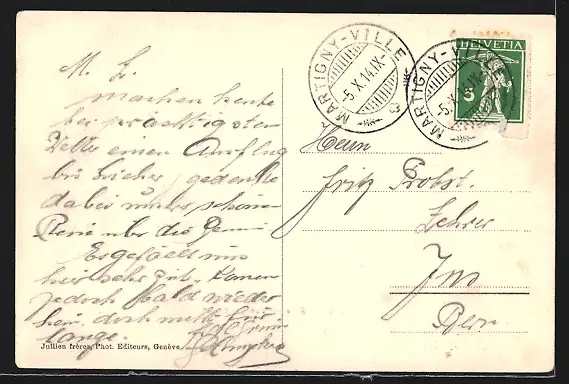 M. L.
machen heute
bei prächtigsten
Wetter einen Ausflug
bis hieher, gedenke
dabei unser schönen
über die Gemmi
Es gefällt uns
hier sehr gut,
jedoch bald wieder
heim, doch nicht für
lange.
Jullien frères, Phot. Editeurs, Genève
MARTIGNY-VILLE
-5.X.14.IX-
MARTIGNY-VILLE
HELVETIA
5
Herrn
Fritz Probst.
Lehrer
Ins
Bern